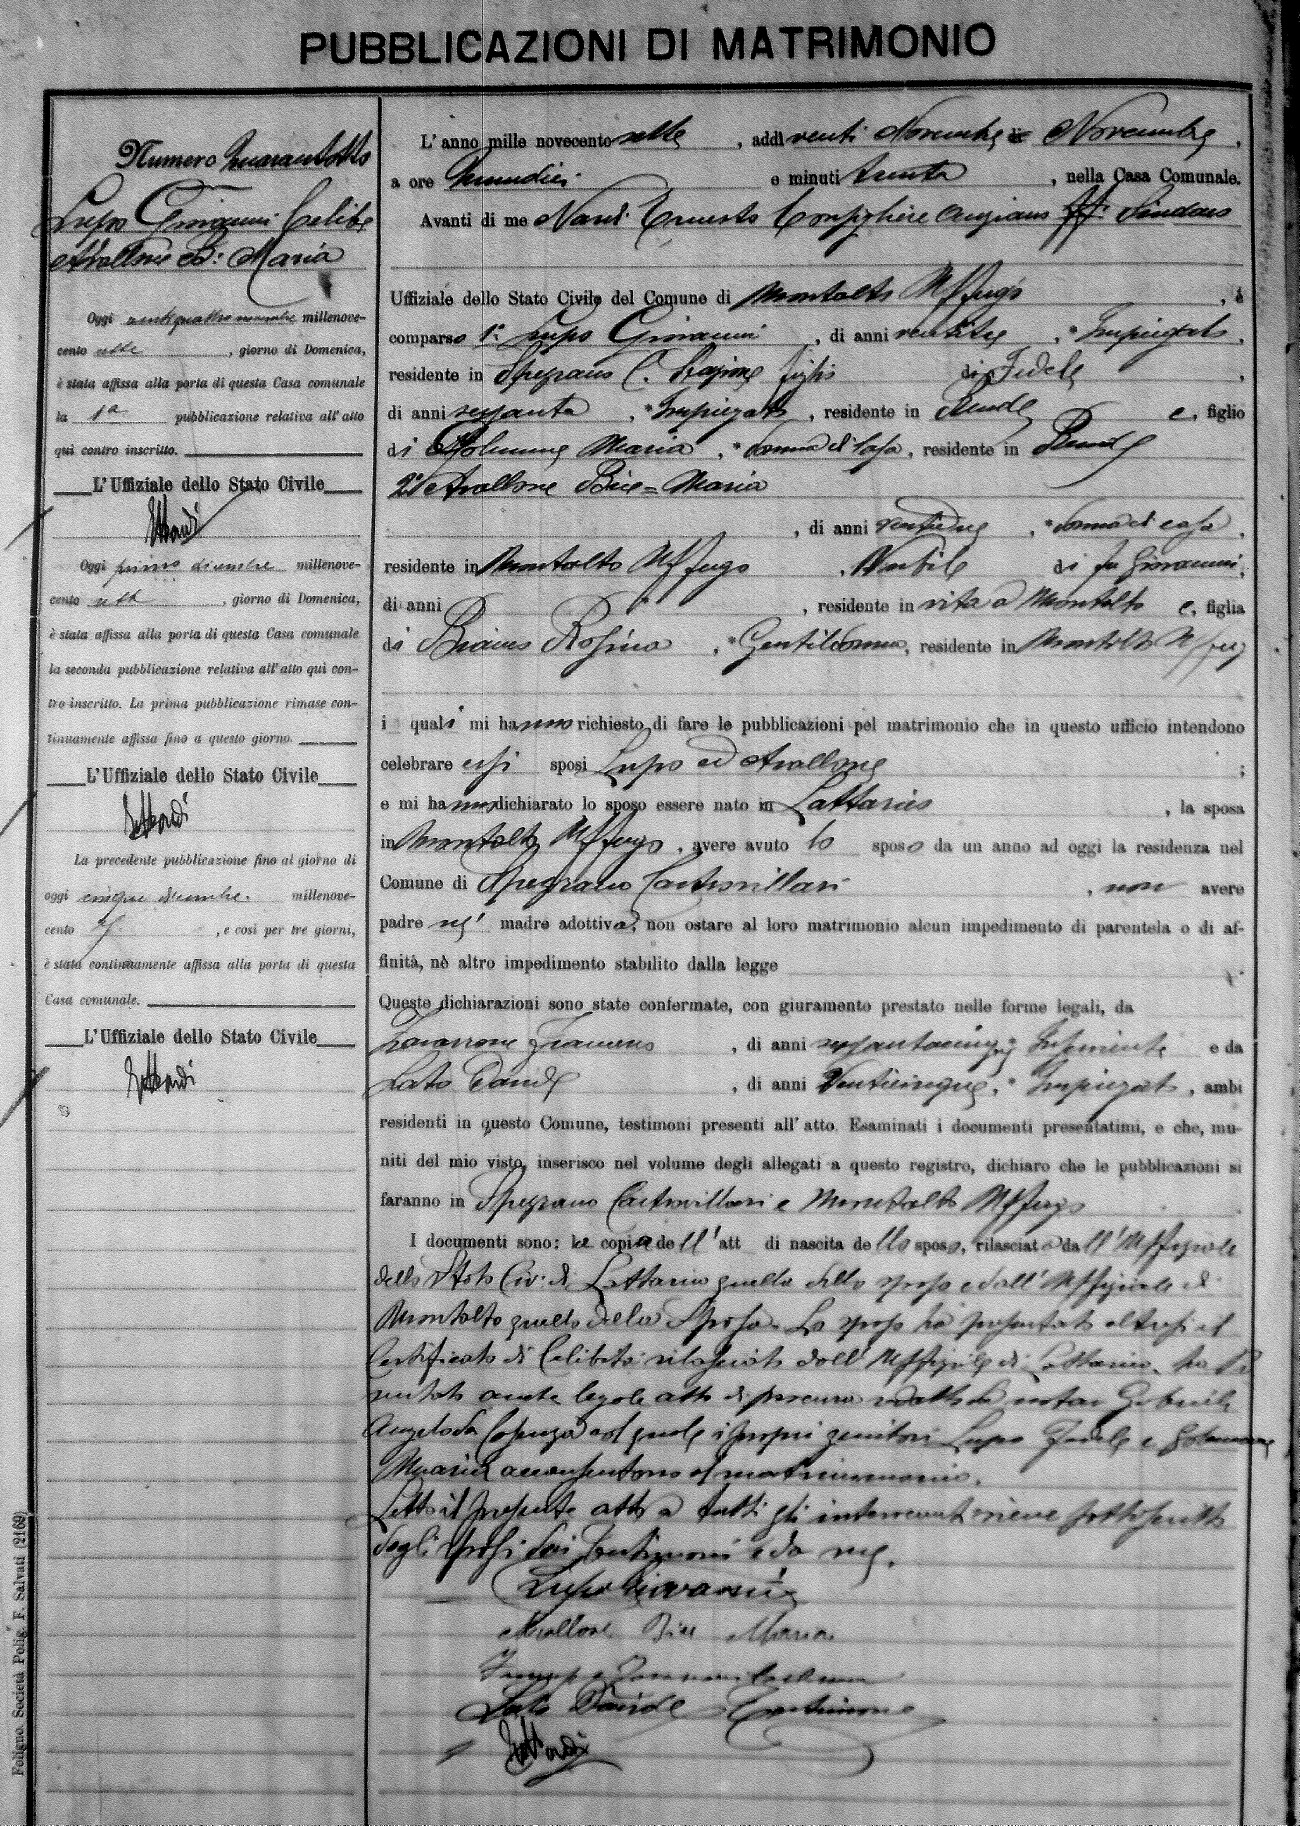 PUBBLICAZIONI DI MATRIMONIO
Numero Quarantotto
Lupo Giovanni Celibe
Avallone B: Maria
Oggi ventiquattro novembre millenove-
cento sette, giorno di Domenica,
è stata affissa alla porta di questa Casa comunale
la 1a pubblicazione relativa all'atto
qui contro inscritto.
L'Uffiziale dello Stato Civile
Oggi primo dicembre millenove-
cento sette, giorno di Domenica,
è stata affissa alla porta di questa Casa comunale
la seconda pubblicazione relativa all'atto qui con-
tro inscritto. La prima pubblicazione rimase con-
tinuamente affissa fino a questo giorno.
L'Uffiziale dello Stato Civile
La precedente pubblicazione fino al giorno di
oggi cinque dicembre millenove-
cento 7, e così per tre giorni,
è stata continuamente affissa alla porta di questa
Casa comunale.
L'Uffiziale dello Stato Civile
Foligno. Società Polig. F. Salvati (2169)
L'anno mille novecento sette, addì venti Novembre di Novembre,
a ore undici e minuti trenta, nella Casa Comunale.
Avanti di me Nardi Ernesto Consigliere anziano ff. Sindaco
Uffiziale dello Stato Civile del Comune di Montalto Uffugo, è
comparso 1° Lupo Giovanni, di anni ventitre, Impiegato,
residente in Spezzano C. figlio di Fedele,
di anni sessanta, Impiegato, residente in Rende e, figlio
di Golemme Maria, donna di casa, residente in Rende
2° Avallone Bice=Maria
, di anni ventidue, donna di casa,
residente in Montalto Uffugo, Nubile di fu Giovanni,
di anni , residente in vita a Montalto e, figlia
di Rosina, Gentildonna, residente in Montalto Uffugo
i quali mi hanno richiesto di fare le pubblicazioni pel matrimonio che in questo ufficio intendono
celebrare essi sposi Lupo ed Avallone;
e mi hanno dichiarato lo sposo essere nato in Lattarico, la sposa
in Montalto Uffugo, avere avuto lo sposo da un anno ad oggi la residenza nel
Comune di Spezzano Castrovillari, non avere
padre nè madre adottivi, non ostare al loro matrimonio alcun impedimento di parentela o di af-
finità, nè altro impedimento stabilito dalla legge
Queste dichiarazioni sono state confermate, con giuramento prestato nelle forme legali, da
Francesco, di anni sessantacinque, Inserviente e da
Lato Davide, di anni Venticinque, Impiegato, ambi
residenti in questo Comune, testimoni presenti all'atto. Esaminati i documenti presentatimi, e che, mu-
niti del mio visto, inserisco nel volume degli allegati a questo registro, dichiaro che le pubblicazioni si
faranno in Spezzano Castrovillari e Montalto Uffugo
I documenti sono: le copia dell'att di nascita dello sposo, rilasciata dall'Uffiziale
dello Stato Civ: di Lattarico quella dello sposo e dall'Uffiziale di
Montalto quella della Sposa. Lo sposo ha presentato altresì il
Certificato di Celibato rilasciato dall'Uffiziale di Lattarico, ha
anche legale atto di procura redatto da notar Gabriele
Angelo da Cosenza col quale i propri genitori Lupo Fedele e Golemme
Maria acconsentono al matrimonio.
Letto il presente atto a tutti gli intervenuti viene sottoscritto
dagli sposi dai testimoni e da me.
Lupo Giovanni
Avallone Bice Maria
Lato Davide Testimone